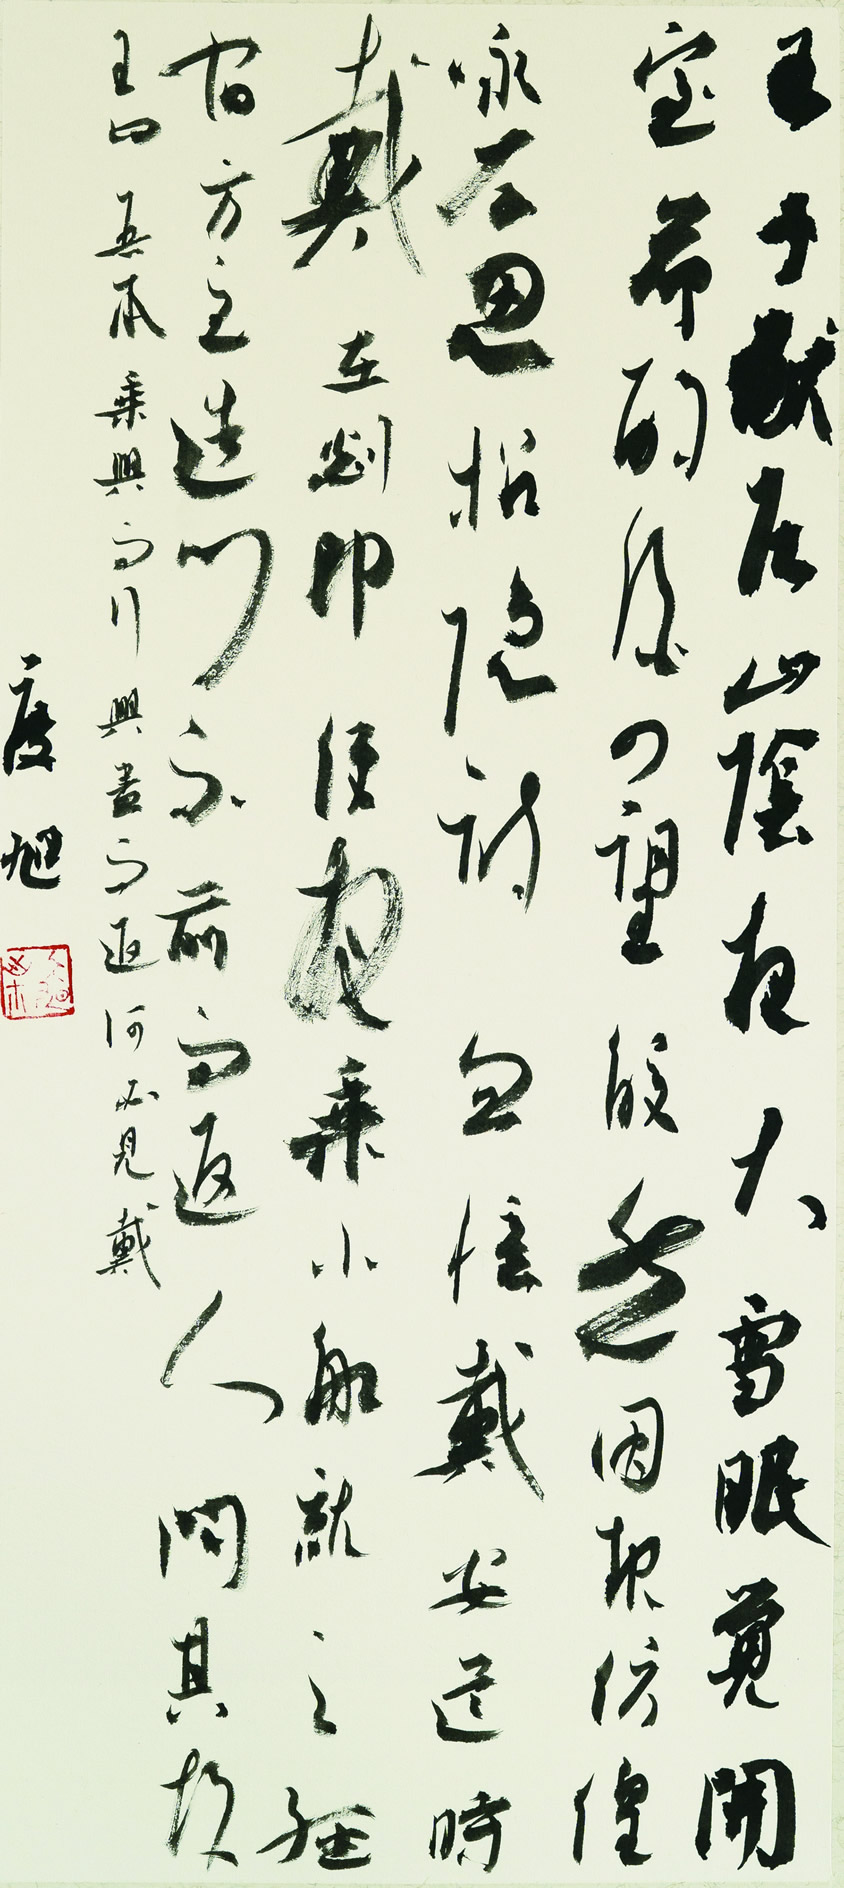 王子猷居山陰夜大雪眠覺開
室命酌酒四望皎然因起彷徨
詠左思招隱詩忽憶戴安道時
戴在剡即便夜乘小船就之經
宿方至造門不前而返人問其故
王曰吾本乘興而行興盡而返何必見戴
度旭